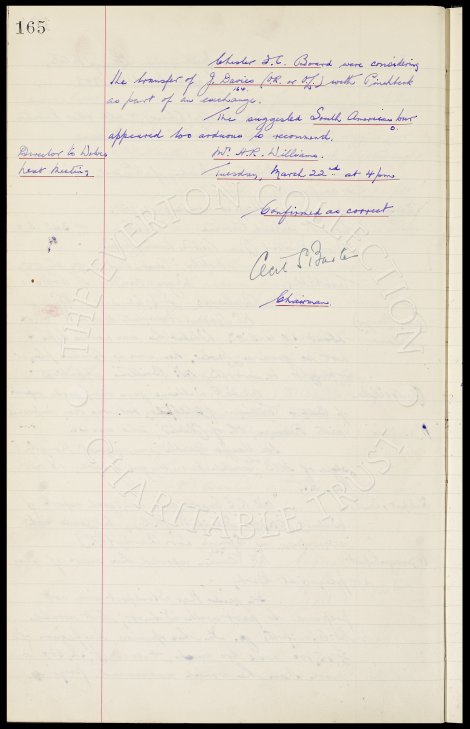 165
Chester F.C. Board were considering
the transfer of J. Davies (O.R. or O.L.) with Pinchbeck
164.
as part of an exchange.
The suggested South American tour
appeared too arduous to recommend.
Director to
next meeting
Mr. H.R. Williams.
Tuesday, March 22nd at 4pm
Confirmed as correct
Cecil S Baxter
Chairman.
THE EVERTON COLLECTION
CHARITABLE TRUST